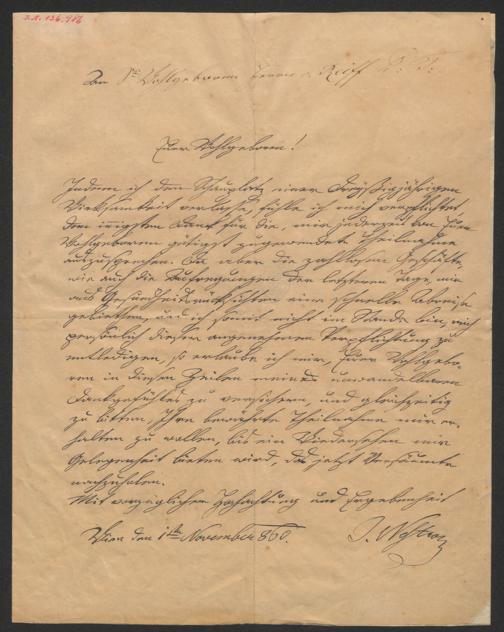 I.N. 136.986
An Sr Wohlgeboren Herrn v. Reiff
Euer Wohlgeboren!
Indem ich den Schauplatz einer dreyßigjährigen
Wirksamkeit verlasse, fühle ich mich verpflichtet
dem innigsten Dank für die, mir jederzeit von Euer
Wohlgeboren gütigst zugewendete Theilnahme
auszusprechen. Da aber die zahllosen Geschäfte
wie auch die Aufregungen der letzteren Tage, mir
aus Gesundheitsrücksichten eine schnelle Abreise
gebiethen, und ich somit nicht im Stande bin, mich
persönlich dieser angenehmen Verpflichtung zu
entledigen, so erlaube ich mir, Euer Wohlgebo-
ren in diesen Zeilen meines unwandelbaren
Dankgefühles zu versichern, und gleichzeitig
zu bitten, Ihre bewährte Theilnahme mir er-
halten zu wollen, bis ein Wiedersehen mir
Gelegenheit bieten wird, das jetzt Versäumte
nachzuholen.
Mit vorzüglicher Hochachtung und Ergebenheit
Wien den 1ten November 860. J. Nestroy